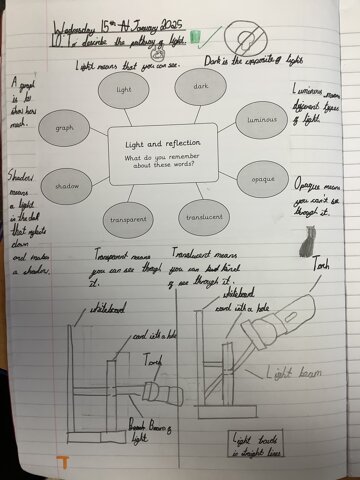 Wednesday 15th January 2025
to describe the pathway of light.
Light means that you can see.
Dark is the opposite of light
A graph
is to
show how
much.
light
dark
Luminous means
different types
of light.
graph
luminous
Light and reflection
What do you remember
about these words?
shadow
opaque
transparent
translucent
Shadow
means
a light
in the dark
that reflects
down
and makes
a shadow.
Opaque means
you can't see
through it.
Transparent means
you can see through
it.
Translucent means
you can kind
of see through it.
whiteboard
card with a hole
Torch
Beam of
light
whiteboard
card with a hole
Torch
Light beam
Light travels
in straight lines
T